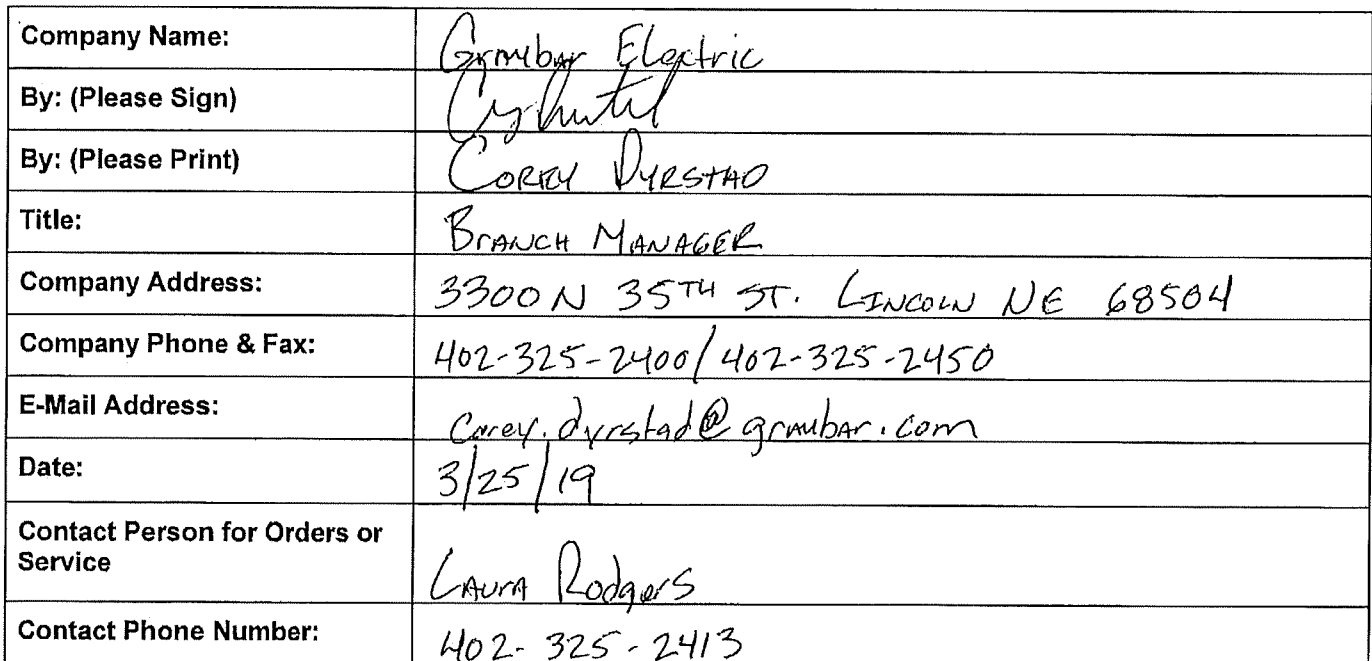 Company Name: Graybar Electric
By: (Please Sign)
By: (Please Print) COREY DYRSTAD
Title: BRANCH MANAGER
Company Address: 3300 N 35TH ST. LINCOLN NE 68504
Company Phone & Fax: 402-325-2400/402-325-2450
E-Mail Address: Corey.dyrstad@graybar.com
Date: 3/25/19
Contact Person for Orders or
Service LAURA Rodgers
Contact Phone Number: 402-325-2413